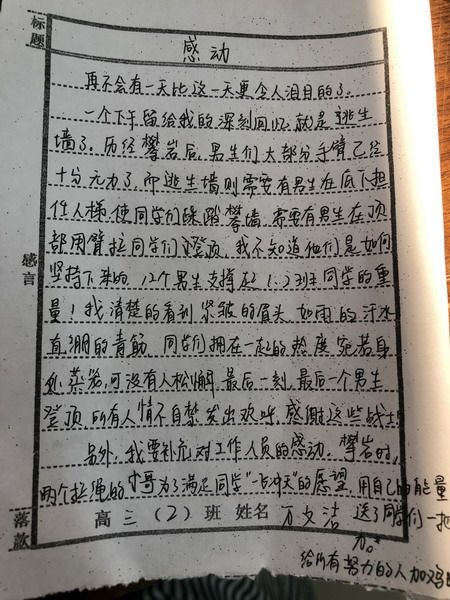 标题
感动
再不会有一天比这一天更令人泪目的了。
一个下午留给我的深刻回忆就是逃生
墙了。历经攀岩后,男生们大部分手臂已经
十分无力了,而逃生墙则需要有男生在底下担
任人梯,使同学们踩踏攀墙,需要有男生在顶
部用臂拉同学们登顶。我不知道他们是如何
坚持下来的,12个男生支撑起1:23班同学的重
量!我清楚的看到紧皱的眉头,如雨的汗水
直绷的青筋,同学们拥在一起的热度宛若身
处蒸笼,可没有人松懈,最后一刻,最后一个男生
登顶,所有人情不自禁发出欢呼,感谢这些战士!
感言
另外,我要补充对工作人员的感动。攀岩时,
两个拉绳的小哥为了满足同学"一步冲天"的愿望,用自己的能量
落款
高三(2)班 姓名 万文洁 送了同学们一把
力。
给所有努力的人加鸡